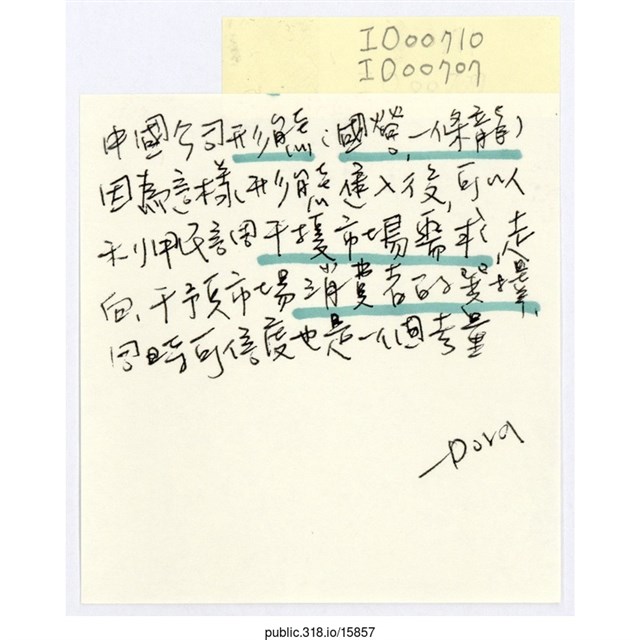 ID00710
ID00707
中國公司形態(國營,一條龍)
因為這樣形態進入後,可以
利用民調干擾市場需求,走
向,干預市場消費者的選擇,
同時可信度也是一個考量
—Dora
public.318.io/15857